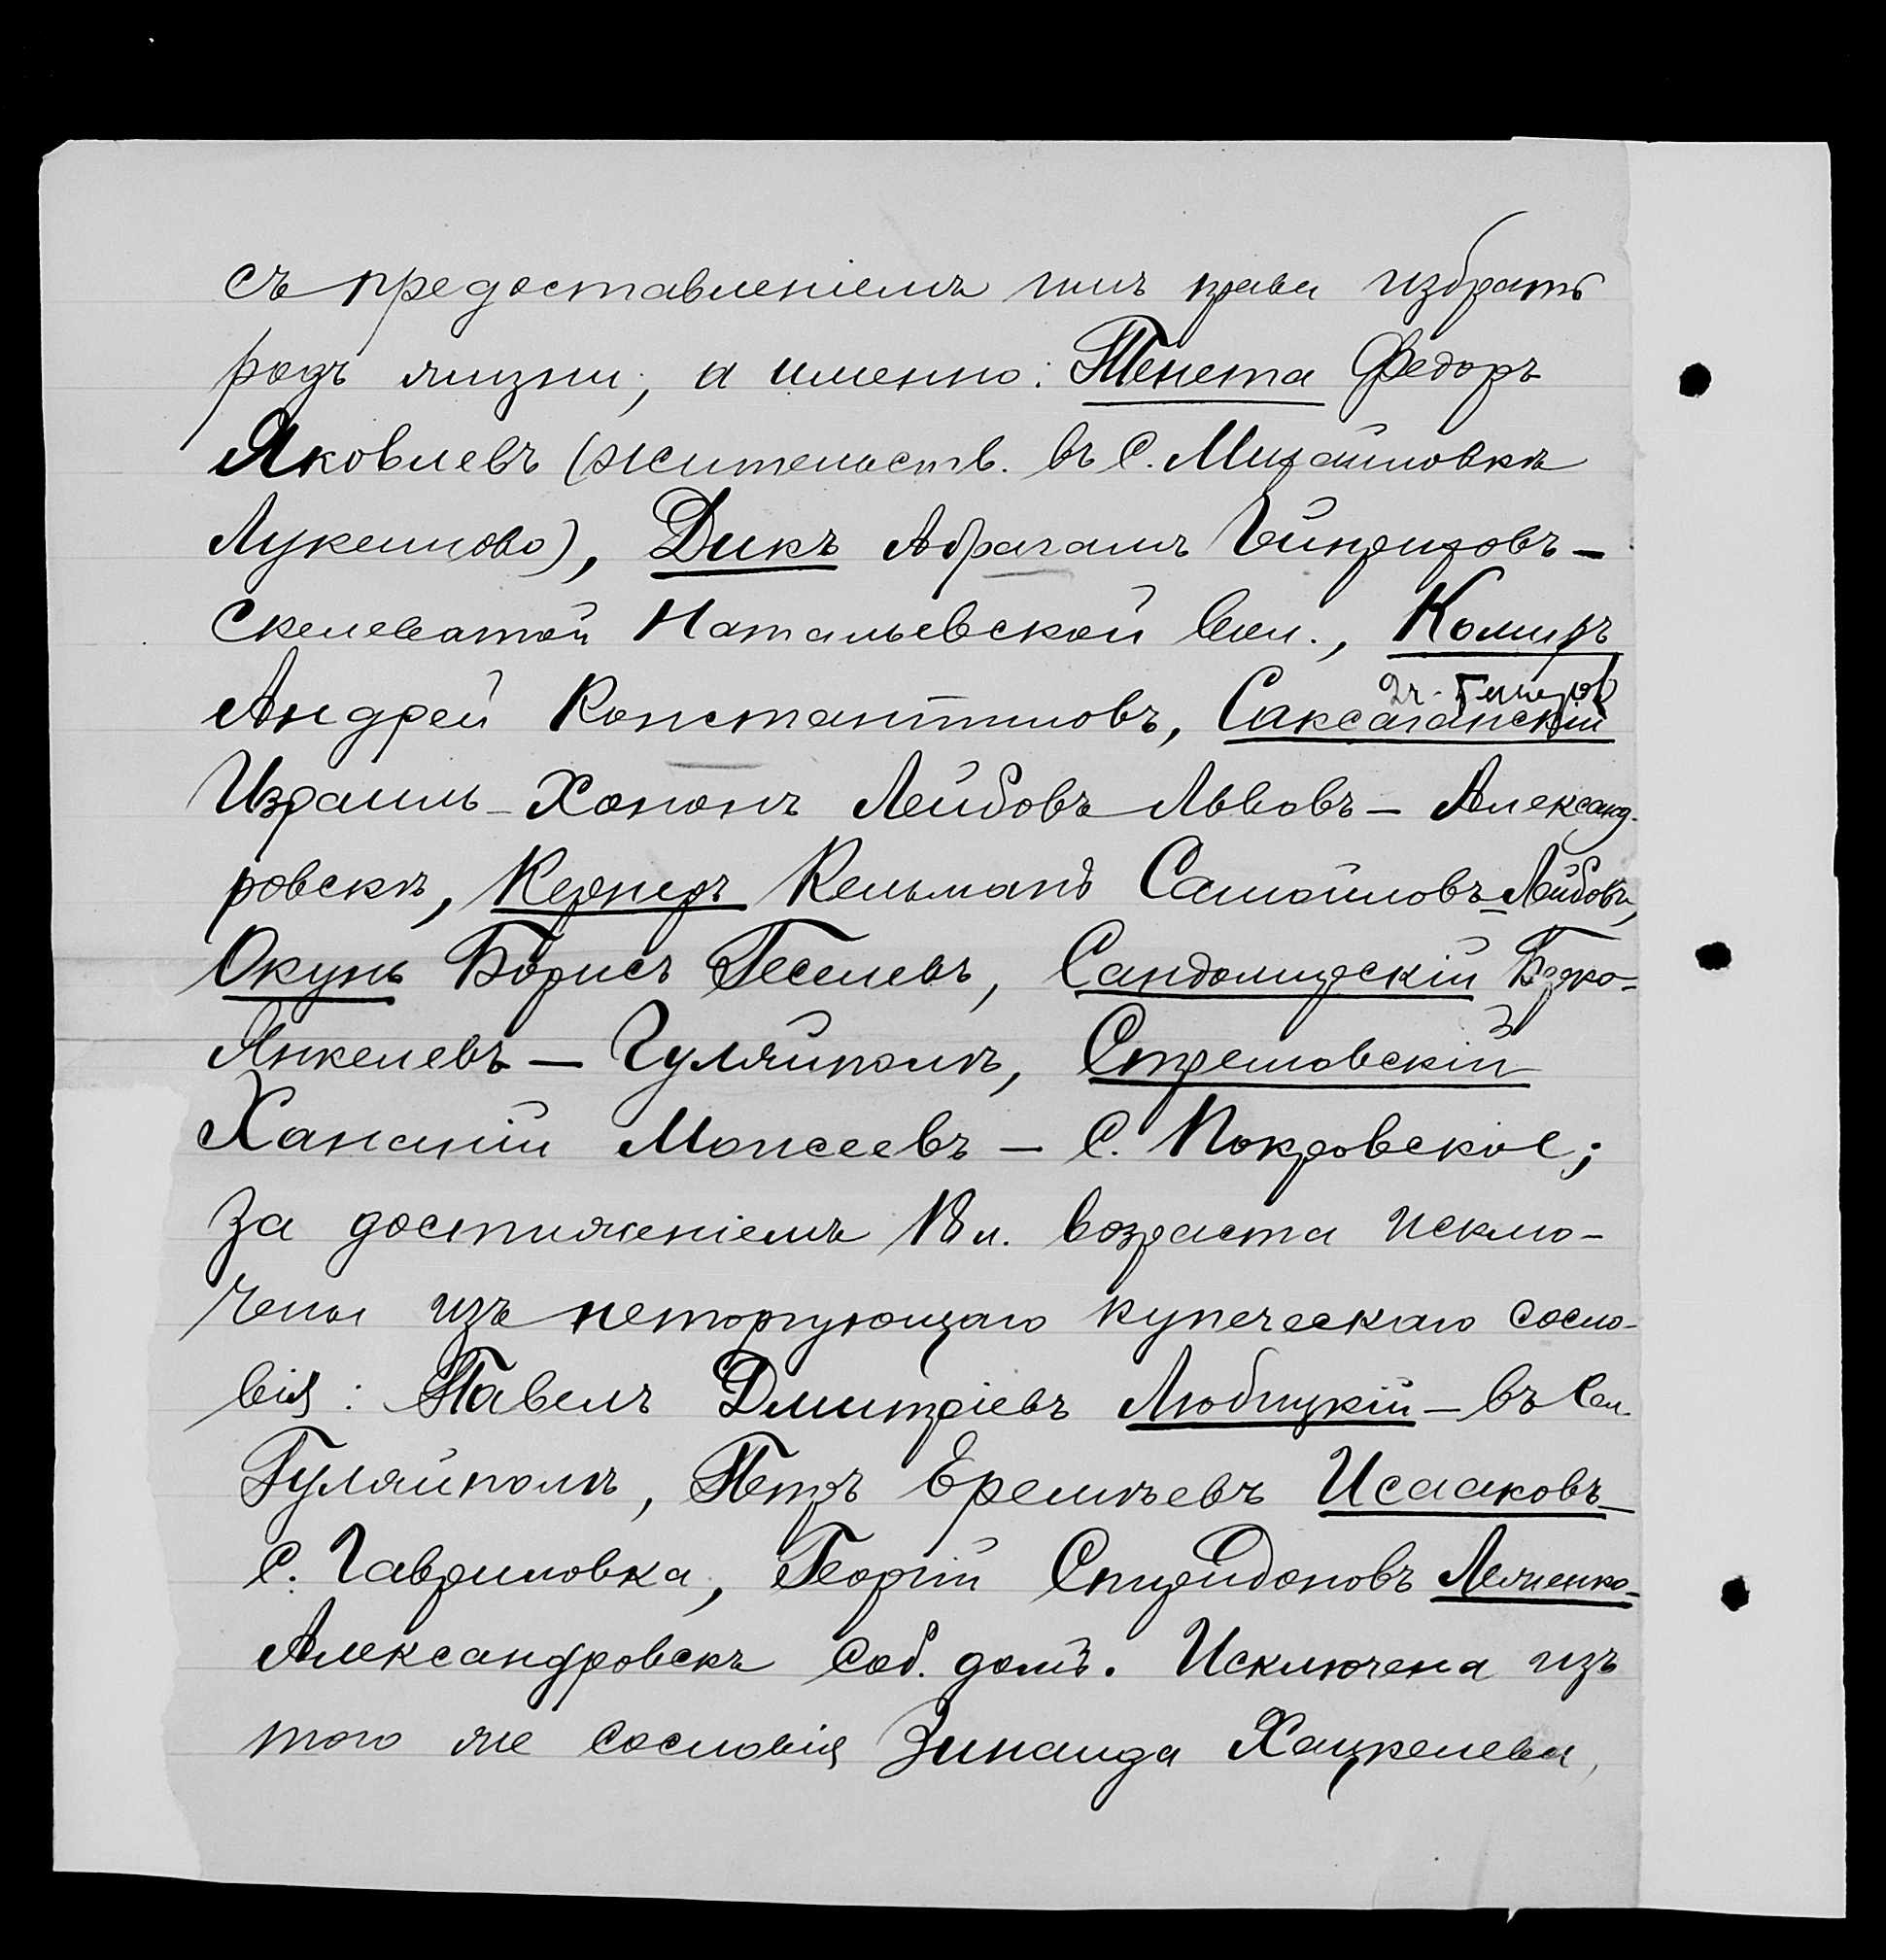 съ предоставленіемъ имъ права избрать
родъ жизни, а именно: Тенета Федоръ
Яковлевъ (жительств. въ с. Михайловкѣ
Лукешово), Дикъ Абрагамъ Гейнриховъ –
Скелеватой Натальевской вол., Комиръ
Андрей Константиновъ, Саксаганскій
Израиль-Хононъ Лейбовъ Львовъ – Александ-
ровскъ, Кернеръ Кельманъ Самойловъ-Лейбовъ,
Окунь Борисъ Геселевъ, Сандомирскій Берко-
Янкелевъ – Гуляйполѣ, Стремовскій
Хананій Моисеевъ – с. Покровское;
за достиженіемъ 18 л. возраста исклю-
чены изъ неторгующаго купеческаго сосло-
вія: Павелъ Дмитріевъ Любицкій – въ сел.
Гуляйполѣ, Петръ Еремѣевъ Исааковъ –
с. Гавриловка, Георгій Спиридоновъ Лемненко –
Александровскъ соб. домъ. Исключена изъ
того же сословія Зинаида Хацкелева,